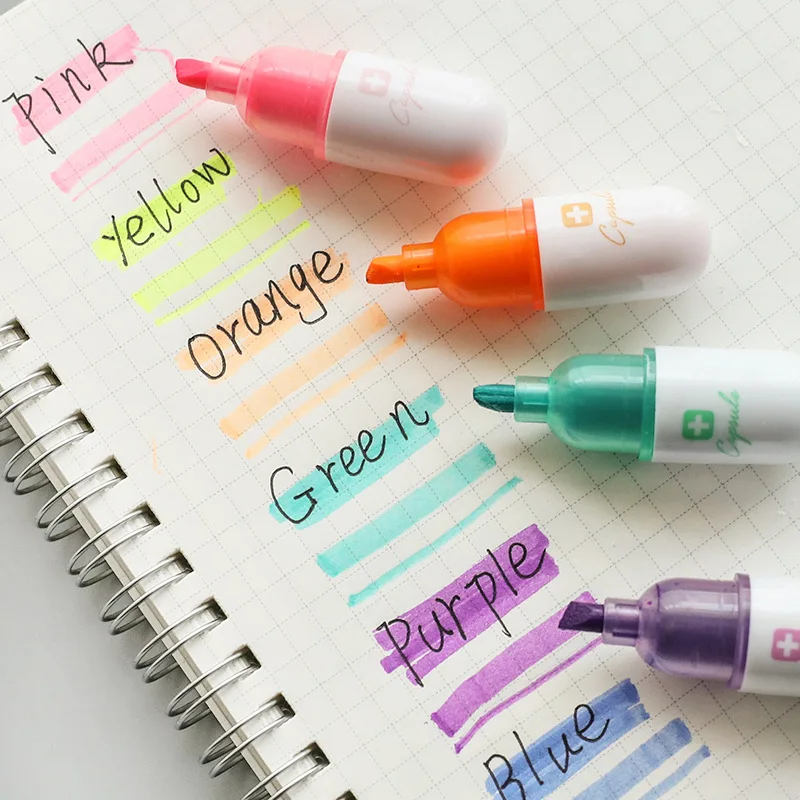 Pink
Yellow
Orange
Green
Purple
Blue
Capsule
Capsule